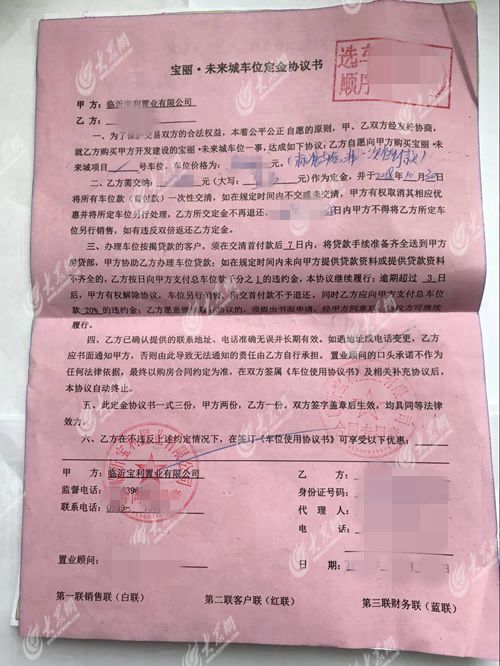 选车
顺序
宝丽·未来城车位定金协议书
甲方：临沂宝利置业有限公司
乙方：
一、为了保护交易双方的合法权益，本着公平公正自愿的原则，甲、乙双方经友好协商，
就乙方购买甲方开发建设的宝丽·未来城车位一事，达成如下协议：乙方自愿向甲方购买宝丽·未
来城项目 号车位，车位价格为： 元（
二、乙方需交纳： 元（大写： 元）作为定金，并于
将所有车位款（首付款）一次性交清，如在规定时间内不交或未交清，甲方有权取消其相应优
惠并将所定车位另行处理，乙方所交定金不再退还。 日内甲方不得将乙方所定车
位另行销售，如有违反双倍返还乙方定金。
三、办理车位按揭贷款的客户，须在交清首付款后7日内，将贷款手续准备齐全送到甲方
房贷部，甲方协助乙方办理车位贷款；如在规定时间内未向甲方提供贷款资料或提供贷款资料
不齐全的，乙方按日向甲方支付总车位款千分之1的违约金，本协议继续履行；逾期超过 3 日
后，甲方有权解除协议，车位另行销售，所交首付款不予退还，同时乙方应向甲方支付总车位
款20%的违约金；乙方愿意继续履行协议的，须提出书面申请，经甲方同意后，本协议方可继续
履行。
四、乙方已确认提供的联系地址、电话准确无误并长期有效。如遇地址或电话变更，乙方
应书面通知甲方，否则由此导致无法通知的责任由乙方自行承担。置业顾问的口头承诺不作为
任何法律依据，最终以购房合同约定为准，在双方签属《车位使用协议书》及相关补充协议后，
本协议自动终止。
五、此定金协议书一式三份，甲方两份，乙方一份。双方签字盖章后生效，均具同等法律
效力。
六、乙方在不违反上述约定情况下，在签订《车位使用协议书》可享受以下优惠：
甲 方：临沂宝利置业有限公司
乙 方：
监督电话： 8396
身份证号码：
联系电话：0539-
代 理 人：
电 话：
置业顾问：
日 期：
第一联销售联（白联）
第二联客户联（红联）
第三联财务联（蓝联）